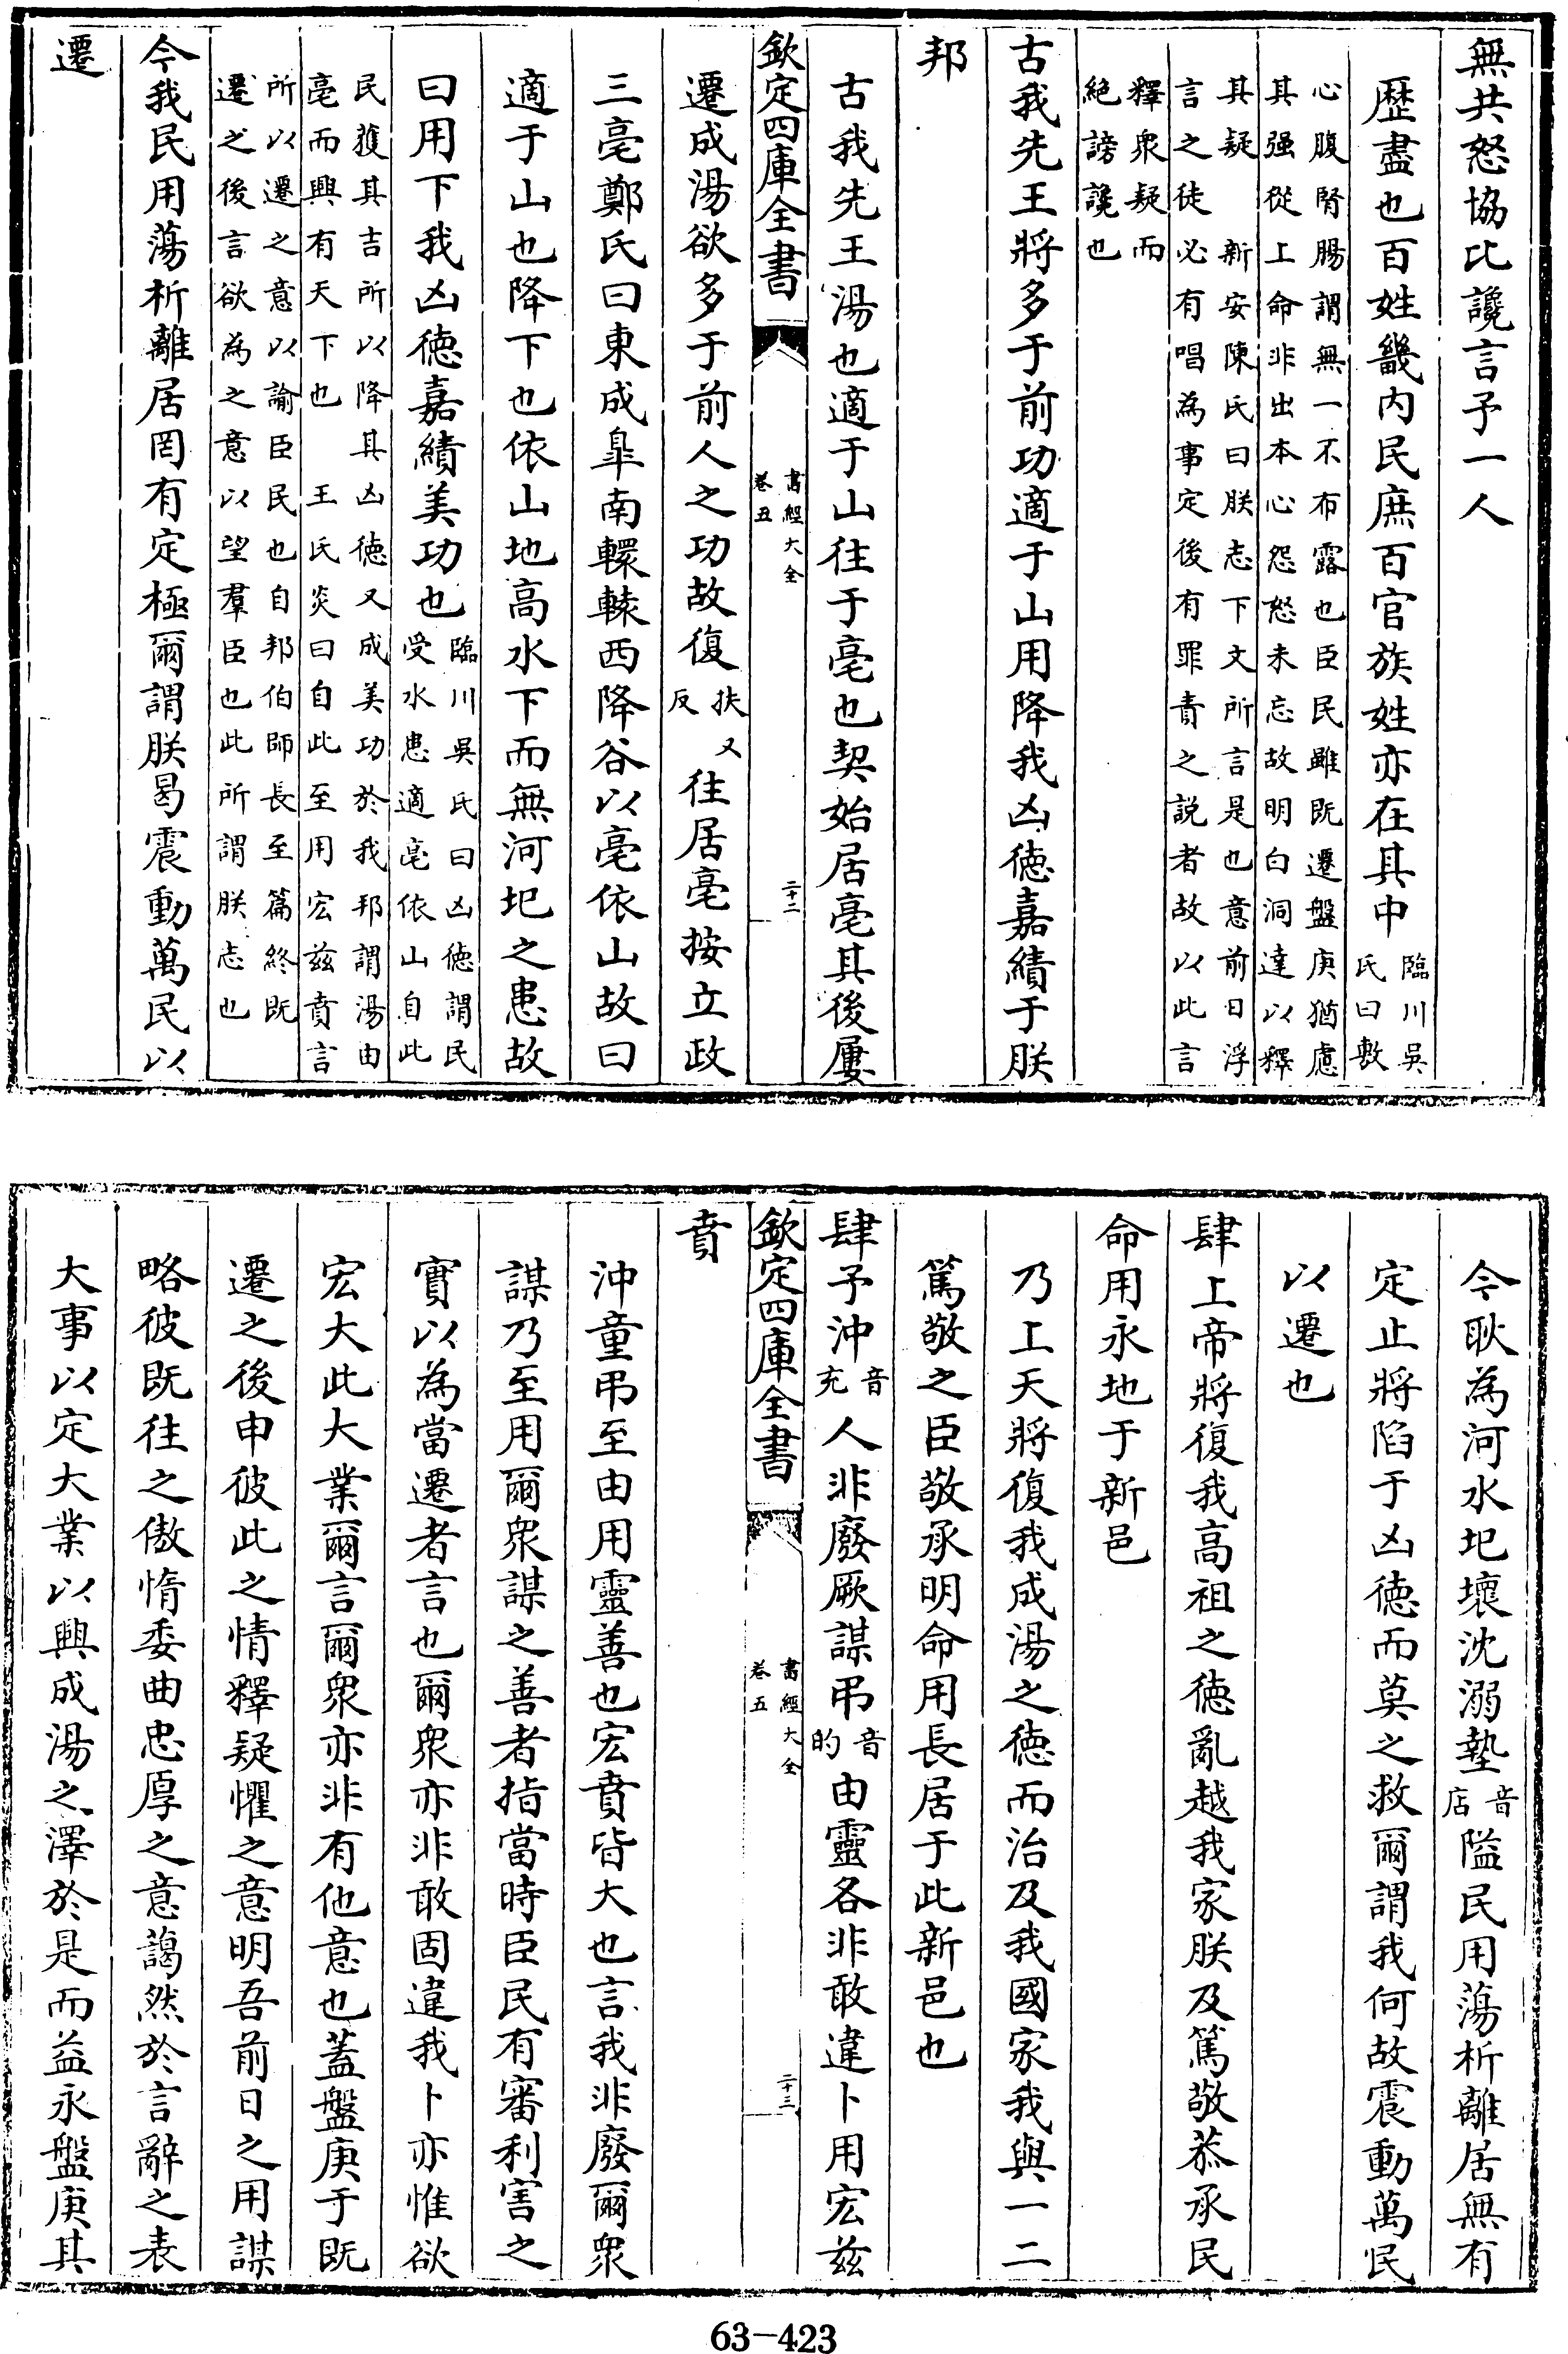 無共怒協比讒言予一人
歴盡也百姓畿内民庶百官族姓亦在其中臨川吳氏曰敷
心腹腎腸謂無一不布露也臣民雖既遷盤庚猶慮
其强從上命非出本心怨怒未忘故明白洞達以釋
其疑　新安陳氏曰朕志下文所言是也意前日浮
言之徒必有唱為事定後有罪責之説者故以此言
釋衆疑而
絶謗讒也
古我先王將多于前功適于山用降我凶德嘉績于朕
邦
古我先王湯也適于山往于亳也契始居亳其後屢
欽定四庫全書
書經大全
卷五
二十二
遷成湯欲多于前人之功故復扶又反往居亳按立政
三亳鄭氏曰東成臯南轘轅西降谷以亳依山故曰
適于山也降下也依山地高水下而無河圯之患故
曰用下我凶德嘉績美功也臨川吳氏曰凶德謂民
受水患適亳依山自此
民獲其吉所以降其凶德又成美功於我邦謂湯由
亳而興有天下也　王氏炎曰自此至用宏兹賁言
所以遷之意以諭臣民也自邦伯師長至篇終既
遷之後言欲為之意以望羣臣也此所謂朕志也
今我民用蕩析離居罔有定極爾謂朕曷震動萬民以
遷
今耿為河水圯壞沈溺墊音店隘民用蕩析離居無有
定止將陷于凶德而莫之救爾謂我何故震動萬民
以遷也
肆上帝將復我高祖之德亂越我家朕及篤敬恭承民
命用永地于新邑
乃上天將復我成湯之德而治及我國家我與一二
篤敬之臣敬承明命用長居于此新邑也
肆予沖音充人非廢厥謀弔音的由靈各非敢違卜用宏兹
欽定四庫全書
書經大全
卷五
二十三
賁
沖童弔至由用靈善也宏賁皆大也言我非廢爾衆
謀乃至用爾衆謀之善者指當時臣民有審利害之
實以為當遷者言也爾衆亦非敢固違我卜亦惟欲
宏大此大業爾言爾衆亦非有他意也蓋盤庚于既
遷之後申彼此之情釋疑懼之意明吾前日之用謀
略彼既往之傲惰委曲忠厚之意藹然於言辭之表
大事以定大業以興成湯之澤於是而益永盤庚其
63-423